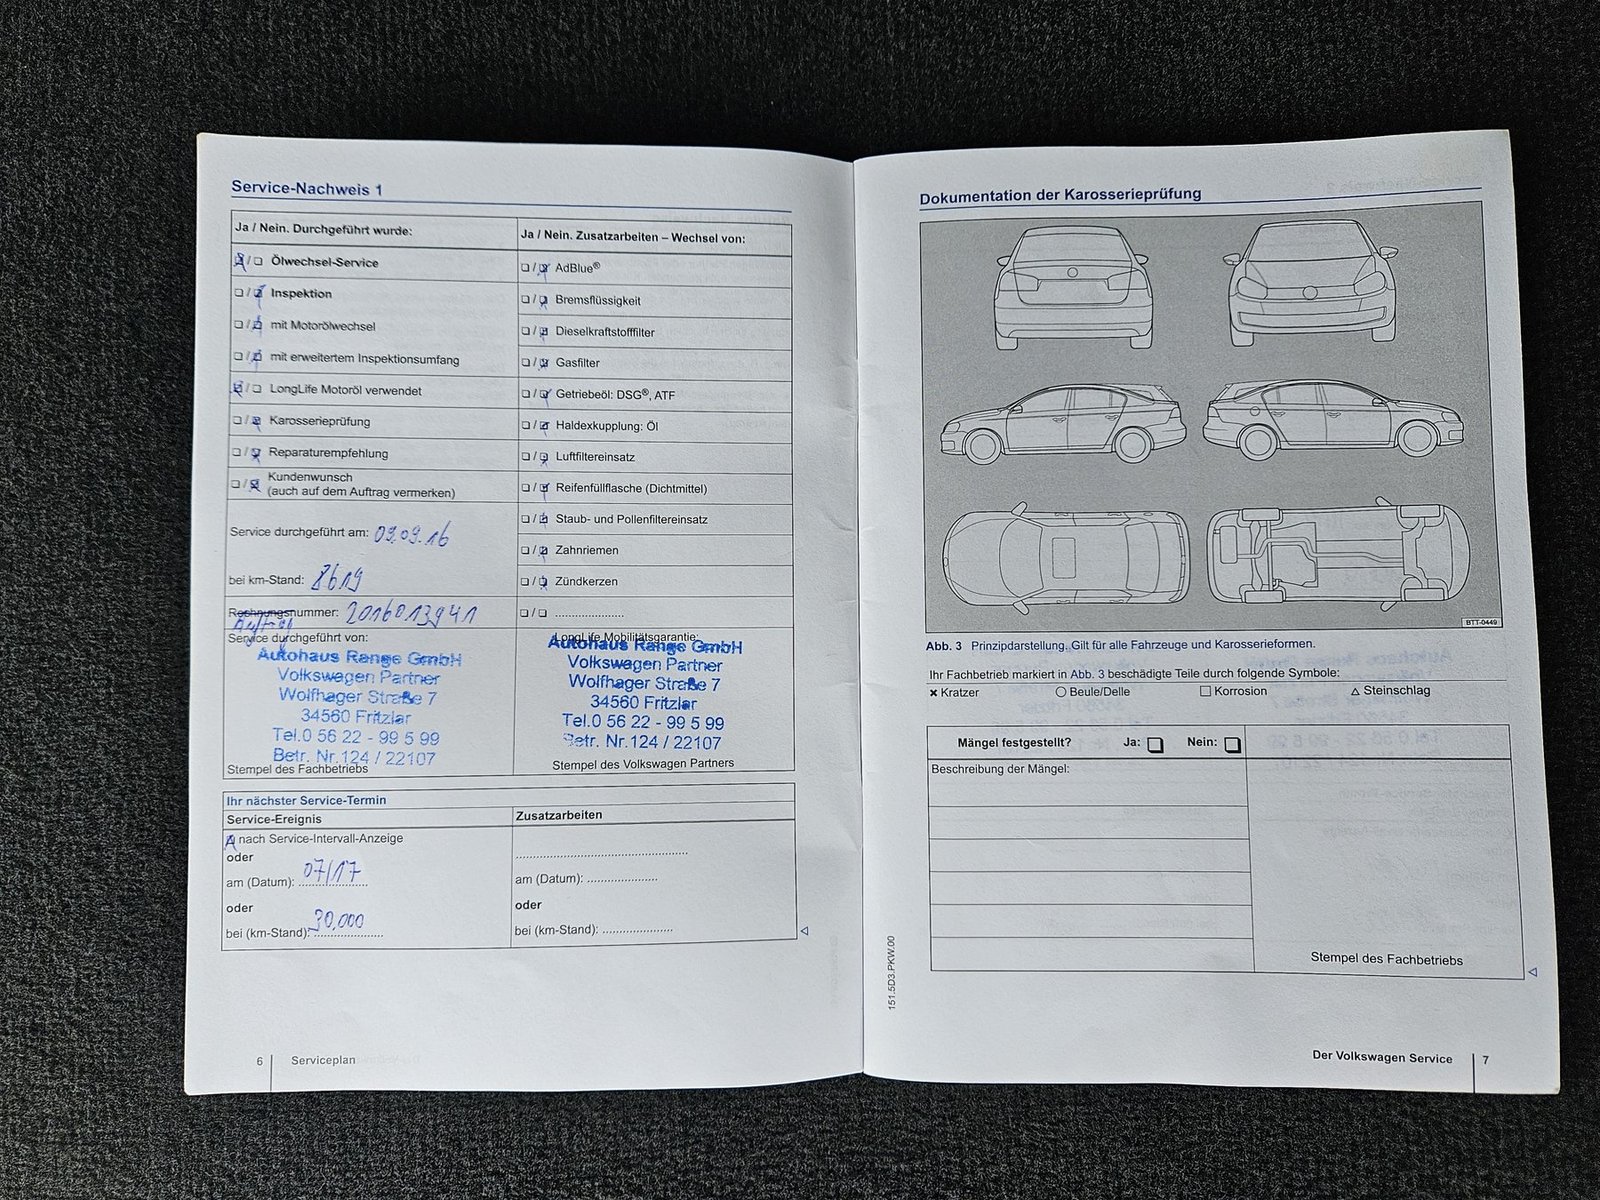 Service-Nachweis 1
Ja / Nein. Durchgeführt wurde:
Ölwechsel-Service
Inspektion
mit Motorölwechsel
mit erweitertem Inspektionsumfang
LongLife Motoröl verwendet
Karosserieprüfung
Reparaturempfehlung
Kundenwunsch
(auch auf dem Auftrag vermerken)
Service durchgeführt am: 09.09.16
bei km-Stand: 8619
Rechnungsnummer: 2016013941
Auftrag
Service durchgeführt von:
Autohaus Range GmbH
Volkswagen Partner
Wolfhager Straße 7
34560 Fritzlar
Tel.0 56 22 - 99 5 99
Betr. Nr.124 / 22107
Stempel des Fachbetriebs
Ja / Nein. Zusatzarbeiten – Wechsel von:
AdBlue®
Bremsflüssigkeit
Dieselkraftstofffilter
Gasfilter
Getriebeöl: DSG®, ATF
Haldexkupplung: Öl
Luftfiltereinsatz
Reifenfüllflasche (Dichtmittel)
Staub- und Pollenfiltereinsatz
Zahnriemen
Zündkerzen
LongLife Mobilitätsgarantie:
Autohaus Range GmbH
Volkswagen Partner
Wolfhager Straße 7
34560 Fritzlar
Tel.0 56 22 - 99 5 99
Betr. Nr.124 / 22107
Stempel des Volkswagen Partners
Ihr nächster Service-Termin
Service-Ereignis
nach Service-Intervall-Anzeige
oder
am (Datum): 07/17
oder
bei (km-Stand): 30.000
Zusatzarbeiten
am (Datum):
oder
bei (km-Stand):
6 Serviceplan
Dokumentation der Karosserieprüfung
BTT-0449
Abb. 3 Prinzipdarstellung. Gilt für alle Fahrzeuge und Karosserieformen.
Ihr Fachbetrieb markiert in Abb. 3 beschädigte Teile durch folgende Symbole:
Kratzer Beule/Delle Korrosion Steinschlag
Mängel festgestellt? Ja: Nein:
Beschreibung der Mängel:
Stempel des Fachbetriebs
151.5D3.PKW.00
Der Volkswagen Service 7